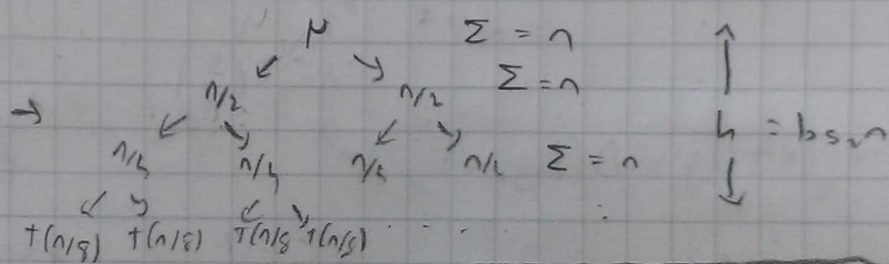 n Σ = n
n/2 n/2 Σ = n
n/4 n/4 n/4 n/4 Σ = n h = log₂n
T(n/8) T(n/8) T(n/8) T(n/8) . . . .